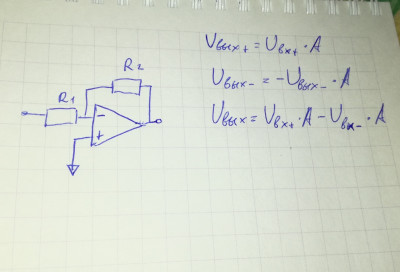 R1
R2
Uвых+ = Uвх+ · A
Uвых- = -Uвых- · A
Uвых = Uвх+ · A - Uвх- · A